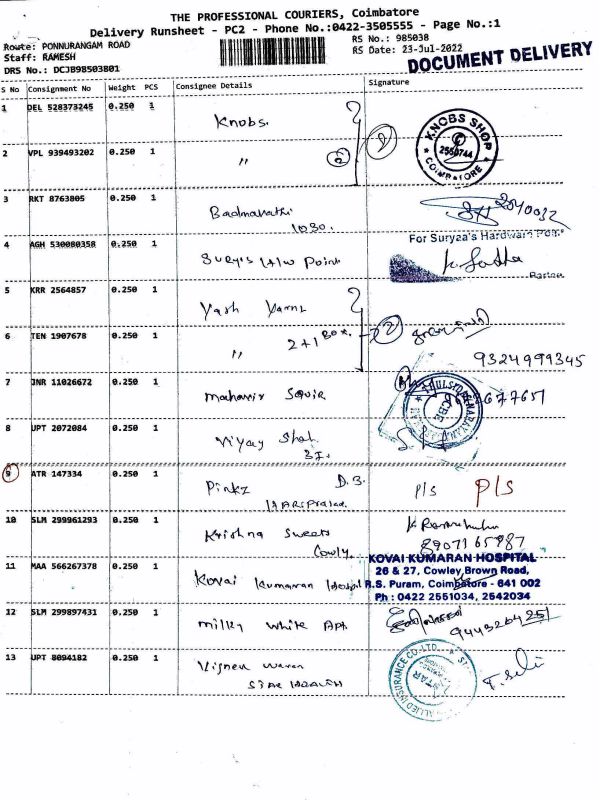 THE PROFESSIONAL COURIERS, Coimbatore
Delivery Runsheet - PC2 - Phone No.:0422-3505555 - Page No.:1
Route: PONNURANGAM ROAD
RS No.: 985038
Staff: RAMESH
RS Date: 23-Jul-2022
DRS No.: DCJB98503801
DOCUMENT DELIVERY
S No Consignment No Weight PCS Consignee Details Signature
1 DEL 528373245 0.250 1 Knobs.
KNOBS SHOP
2550744
COIMBATORE
2 VPL 939493202 0.250 1 " 2 2
3 RKT 8763805 0.250 1 Badmavathi
1030.
4 AGH 530080358 0.250 1 Surya's H/W Point
For Suryaa's Hardware Point
5 KRR 2564857 0.250 1 Yash Yarns
6 TEN 1907678 0.250 1 " 2+1 Box. 2
9324999345
7 JNR 11026672 0.250 1 Mahavir Squire
8 UPT 2072084 0.250 1 Vijay Shah.
9 ATR 147334 0.250 1 Pinkz D.B. P/S P/S
10 SLM 299961293 0.250 1 Krishna Sweets
Cowly.
8907165987
11 MAA 566267378 0.250 1 Kovai Kumaran Hospital
KOVAI KUMARAN HOSPITAL
26 & 27, Cowley Brown Road,
R.S. Puram, Coimbatore - 641 002
Ph : 0422 2551034, 2542034
12 SLM 299897431 0.250 1 Milky White Apt
13 UPT 8094182 0.250 1
Star Health
ALLIED INSURANCE CO-LTD.
STAR
T. Selvi